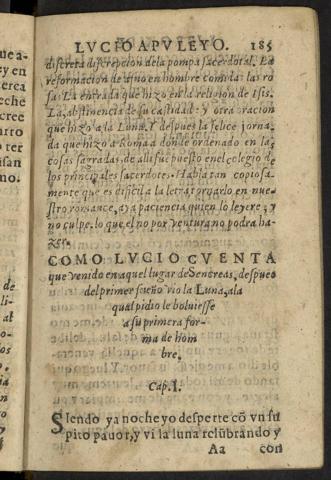 LVCIO APVLEYO. 185
discreta discrepcion dela pompa sacerdotal. La
reformacion de asno en hombre comidas las ro
sas. La entrada que hizo en la religion de Isis.
La abstinencia de su castidad: y otra oracion
que hizo a la Luna. Y despues la felice jorna
da que hizo a Roma a donde ordenado en las
cosas sagradas, de alli fue puesto en el colegio de
los principales sacerdotes. Habla tan copiosa
mente que es dificil a la letra tornarlo en nue
stro romance, aya paciencia quien lo leyere, y
no culpe lo que el no por ventura no podra ha-
zer.
COMO LVCIO CVENTA
que venido en aquel lugar de Sencreas, despues
del primer sueño vio la Luna, a la
qual pidio le boluiesse
a su primera for-
ma de hom
bre.
Cap. I.
SIendo ya noche yo desperte cō vn su
pito pauor, y vi la luna relūbrando y
Aa con